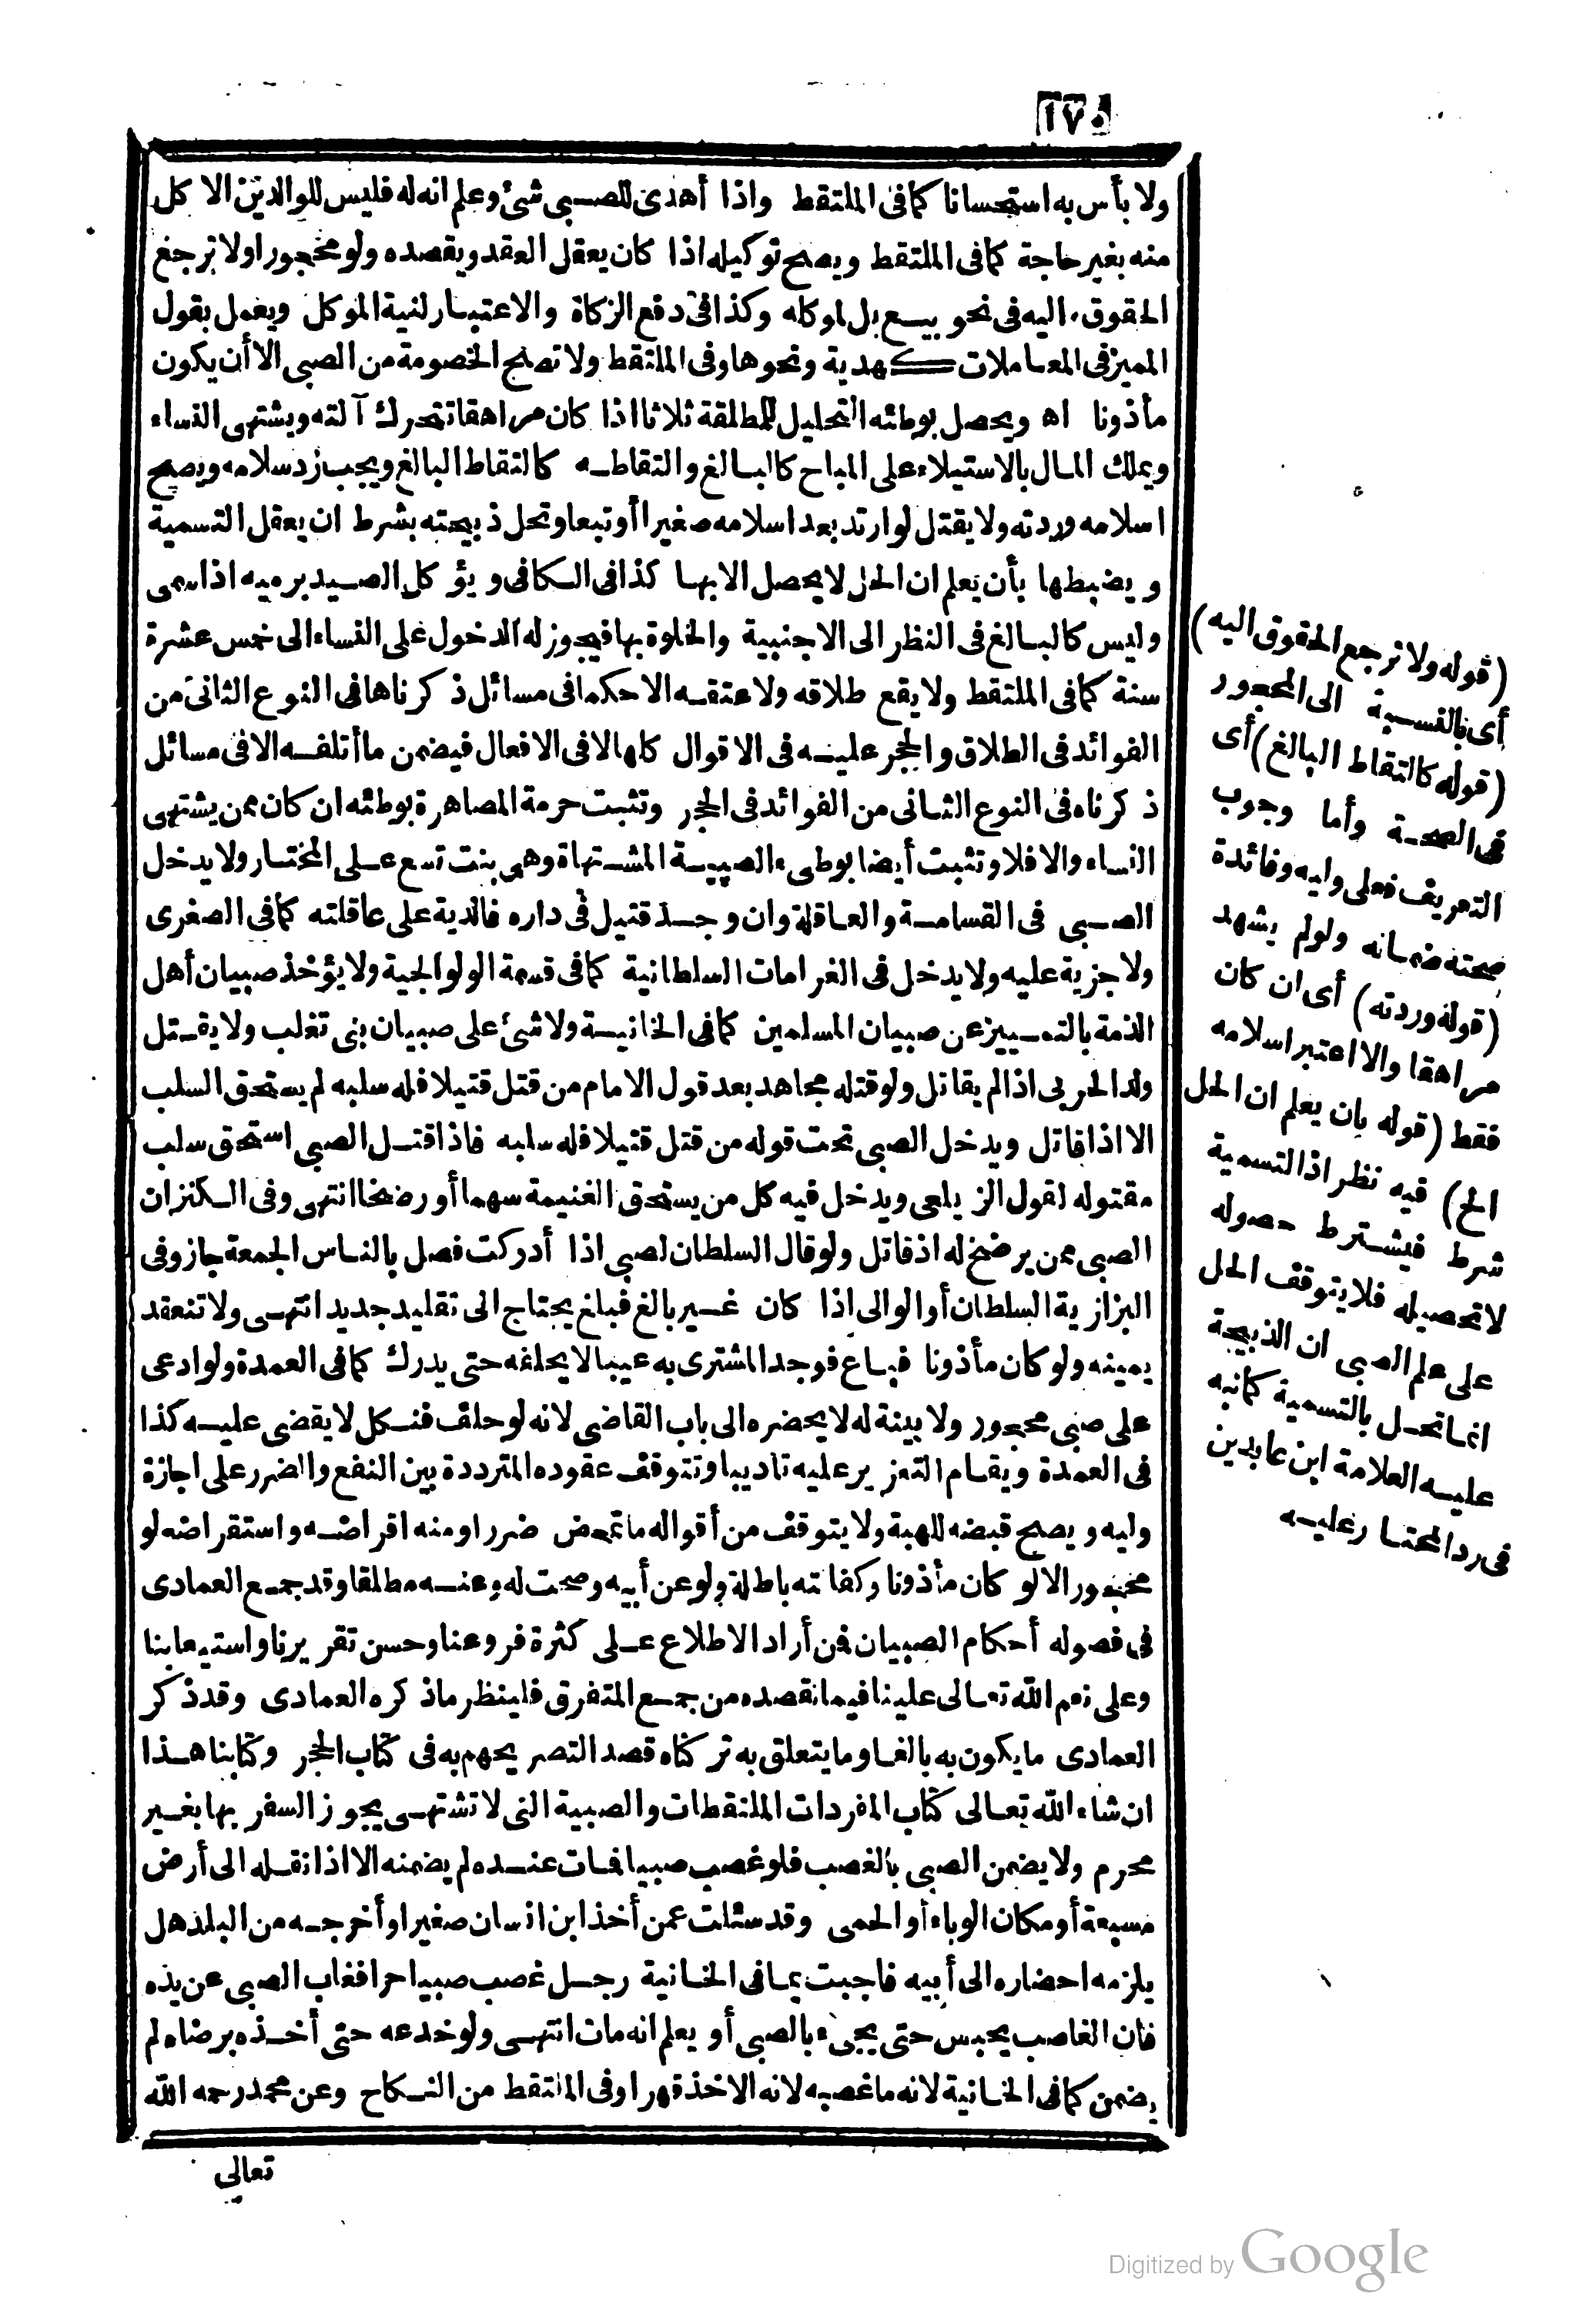 ١٧٥
ولا بأس به استحسانا كما فى الملتقط واذا أهدى للصبى شئ وعلم انه له فليس للوالدين الا كل
منه بغير حاجة كما فى الملتقط ويصح توكيله اذا كان يعقل العقد ويقصده ولو محجورا ولا ترجع
الحقوق اليه فى نحو بيع بل لموكله وكذا فى دفع الزكاة والاعتبار لنية الموكل ويعمل بقول
المميز فى المعاملات كهدية ونحوها وفى الملتقط ولا تصح الخصومة من الصبى الا أن يكون
مأذونا اه ويحصل بوطئه التحليل للمطلقة ثلاثا اذا كان مراهقا تتحرك آلته ويشتهى النساء
ويملك المال بالاستيلاء على المباح كالبالغ والتقاطه كالتقاط البالغ ويجب رد سلامه ويصح
اسلامه وردته ولا يقتل لو ارتد بعد اسلامه صغيرا أو تبعا وتحل ذبيحته بشرط ان يعقل التسمية
ويضبطها بأن يعلم ان الحل لا يحصل الا بها كذا فى الكافى ويؤكل الصيد برميه اذا سمى
وليس كالبالغ فى النظر الى الاجنبية والخلوة بها فيجوز له الدخول على النساء الى خمس عشرة
سنة كما فى الملتقط ولا يقع طلاقه ولا عتقه الا حكما فى مسائل ذكرناها فى النوع الثانى من
الفوائد فى الطلاق والحجر عليه فى الاقوال كلها لا فى الافعال فيضمن ما أتلفه الا فى مسائل
ذكرناه فى النوع الثانى من الفوائد فى الحجر وتثبت حرمة المصاهرة بوطئه ان كان ممن يشتهى
النساء والا فلا وتثبت أيضا بوطىء الصبية المشتهاة وهى بنت تسع على المختار ولا يدخل
الصبى فى القسامة والعاقلة وان وجد قتيل فى داره فالدية على عاقلته كما فى الصغرى
ولا جزية عليه ولا يدخل فى الغرامات السلطانية كما فى قسمة الولوالجية ولا يؤخذ صبيان أهل
الذمة بالتمييز عن صبيان المسلمين كما فى الخانية ولا شئ على صبيان بنى تغلب ولا يقتل
ولد الحربى اذا لم يقاتل ولو قتله مجاهد بعد قول الامام من قتل قتيلا فله سلبه لم يستحق السلب
الا اذا قاتل ويدخل الصبى تحت قوله من قتل قتيلا فله سلبه فاذا قتل الصبى استحق سلب
مقتوله لقول الزيلعى ويدخل فيه كل من يستحق الغنيمة سهما أو رضخا انتهى وفى الكنز ان
الصبى ممن يرضخ له اذ قاتل ولو قال السلطان لصبى اذا أدركت فصل بالناس الجمعة جاز وفى
البزازية السلطان أو الوالى اذا كان غير بالغ فبلغ يحتاج الى تقليد جديد انتهى ولا تنعقد
يمينه ولو كان مأذونا فباع فوجد المشترى به عيبا لا يحلفه حتى يدرك كما فى العمدة ولو ادعى
على صبى محجور ولا بينة له لا يحضره الى باب القاضى لانه لو حلف فنكل لا يقضى عليه كذا
فى العمدة ويقام التعزير عليه تاديبا وتتوقف عقوده المترددة بين النفع والضرر على اجازة
وليه ويصح قبضه للهبة ولا يتوقف من أقواله ما تمحض ضررا ومنه اقراضه واستقراضه لو
محجورا لا لو كان مأذونا وكفالته باطلة ولو عن أبيه وصحت له وعنه مطلقا وقد جمع العمادى
فى فصوله أحكام الصبيان فمن أراد الاطلاع على كثرة فروعنا وحسن تقريرنا واستيعابنا
وعلى نعم الله تعالى علينا فيما نقصده من جمع المتفرق فلينظر ما ذكره العمادى وقد ذكر
العمادى ما يكون به بالغا وما يتعلق به تركناه قصد التصريحهم به فى كتاب الحجر وكتابنا هذا
ان شاء الله تعالى كتاب المفردات الملتقطات والصبية التى لا تشتهى يجوز السفر بها بغير
محرم ولا يضمن الصبى بالغصب فلو غصب صبيا فمات عنده لم يضمنه الا اذا نقله الى أرض
مسبعة أو مكان الوباء أو الحمى وقد سئلت عمن أخذ ابن انسان صغيرا وأخرجه من البلد هل
يلزمه احضاره الى أبيه فاجبت بما فى الخانية رجل غصب صبيا حرا فغاب الصبى عن يده
فان الغاصب يحبس حتى يجىء بالصبى أو يعلم انه مات انتهى ولو خدعه حتى أخذه برضاه لم
يضمن كما فى الخانية لانه ما غصبه لانه الاخذ قهرا وفى الملتقط من النكاح وعن محمد رحمه الله
تعالى
(قوله ولا ترجع الحقوق اليه)
أى بالنسبة الى المحجور
(قوله كالتقاط البالغ) أى
فى الصحة وأما وجوب
التعريف فعلى وليه وفائدة
صحته ضمانه ولو لم يشهد
(قوله وردته) أى ان كان
مراهقا والا اعتبر اسلامه
فقط (قوله بان يعلم ان الحل
الخ) فيه نظر اذ التسمية
شرط فيشترط حصوله
لا تحصيله فلا يتوقف الحل
على علم الصبى ان الذبيحة
انما تحل بالتسمية كما نبه
عليه العلامة ابن عابدين
فى رد المحتار عليه
Digitized by Google